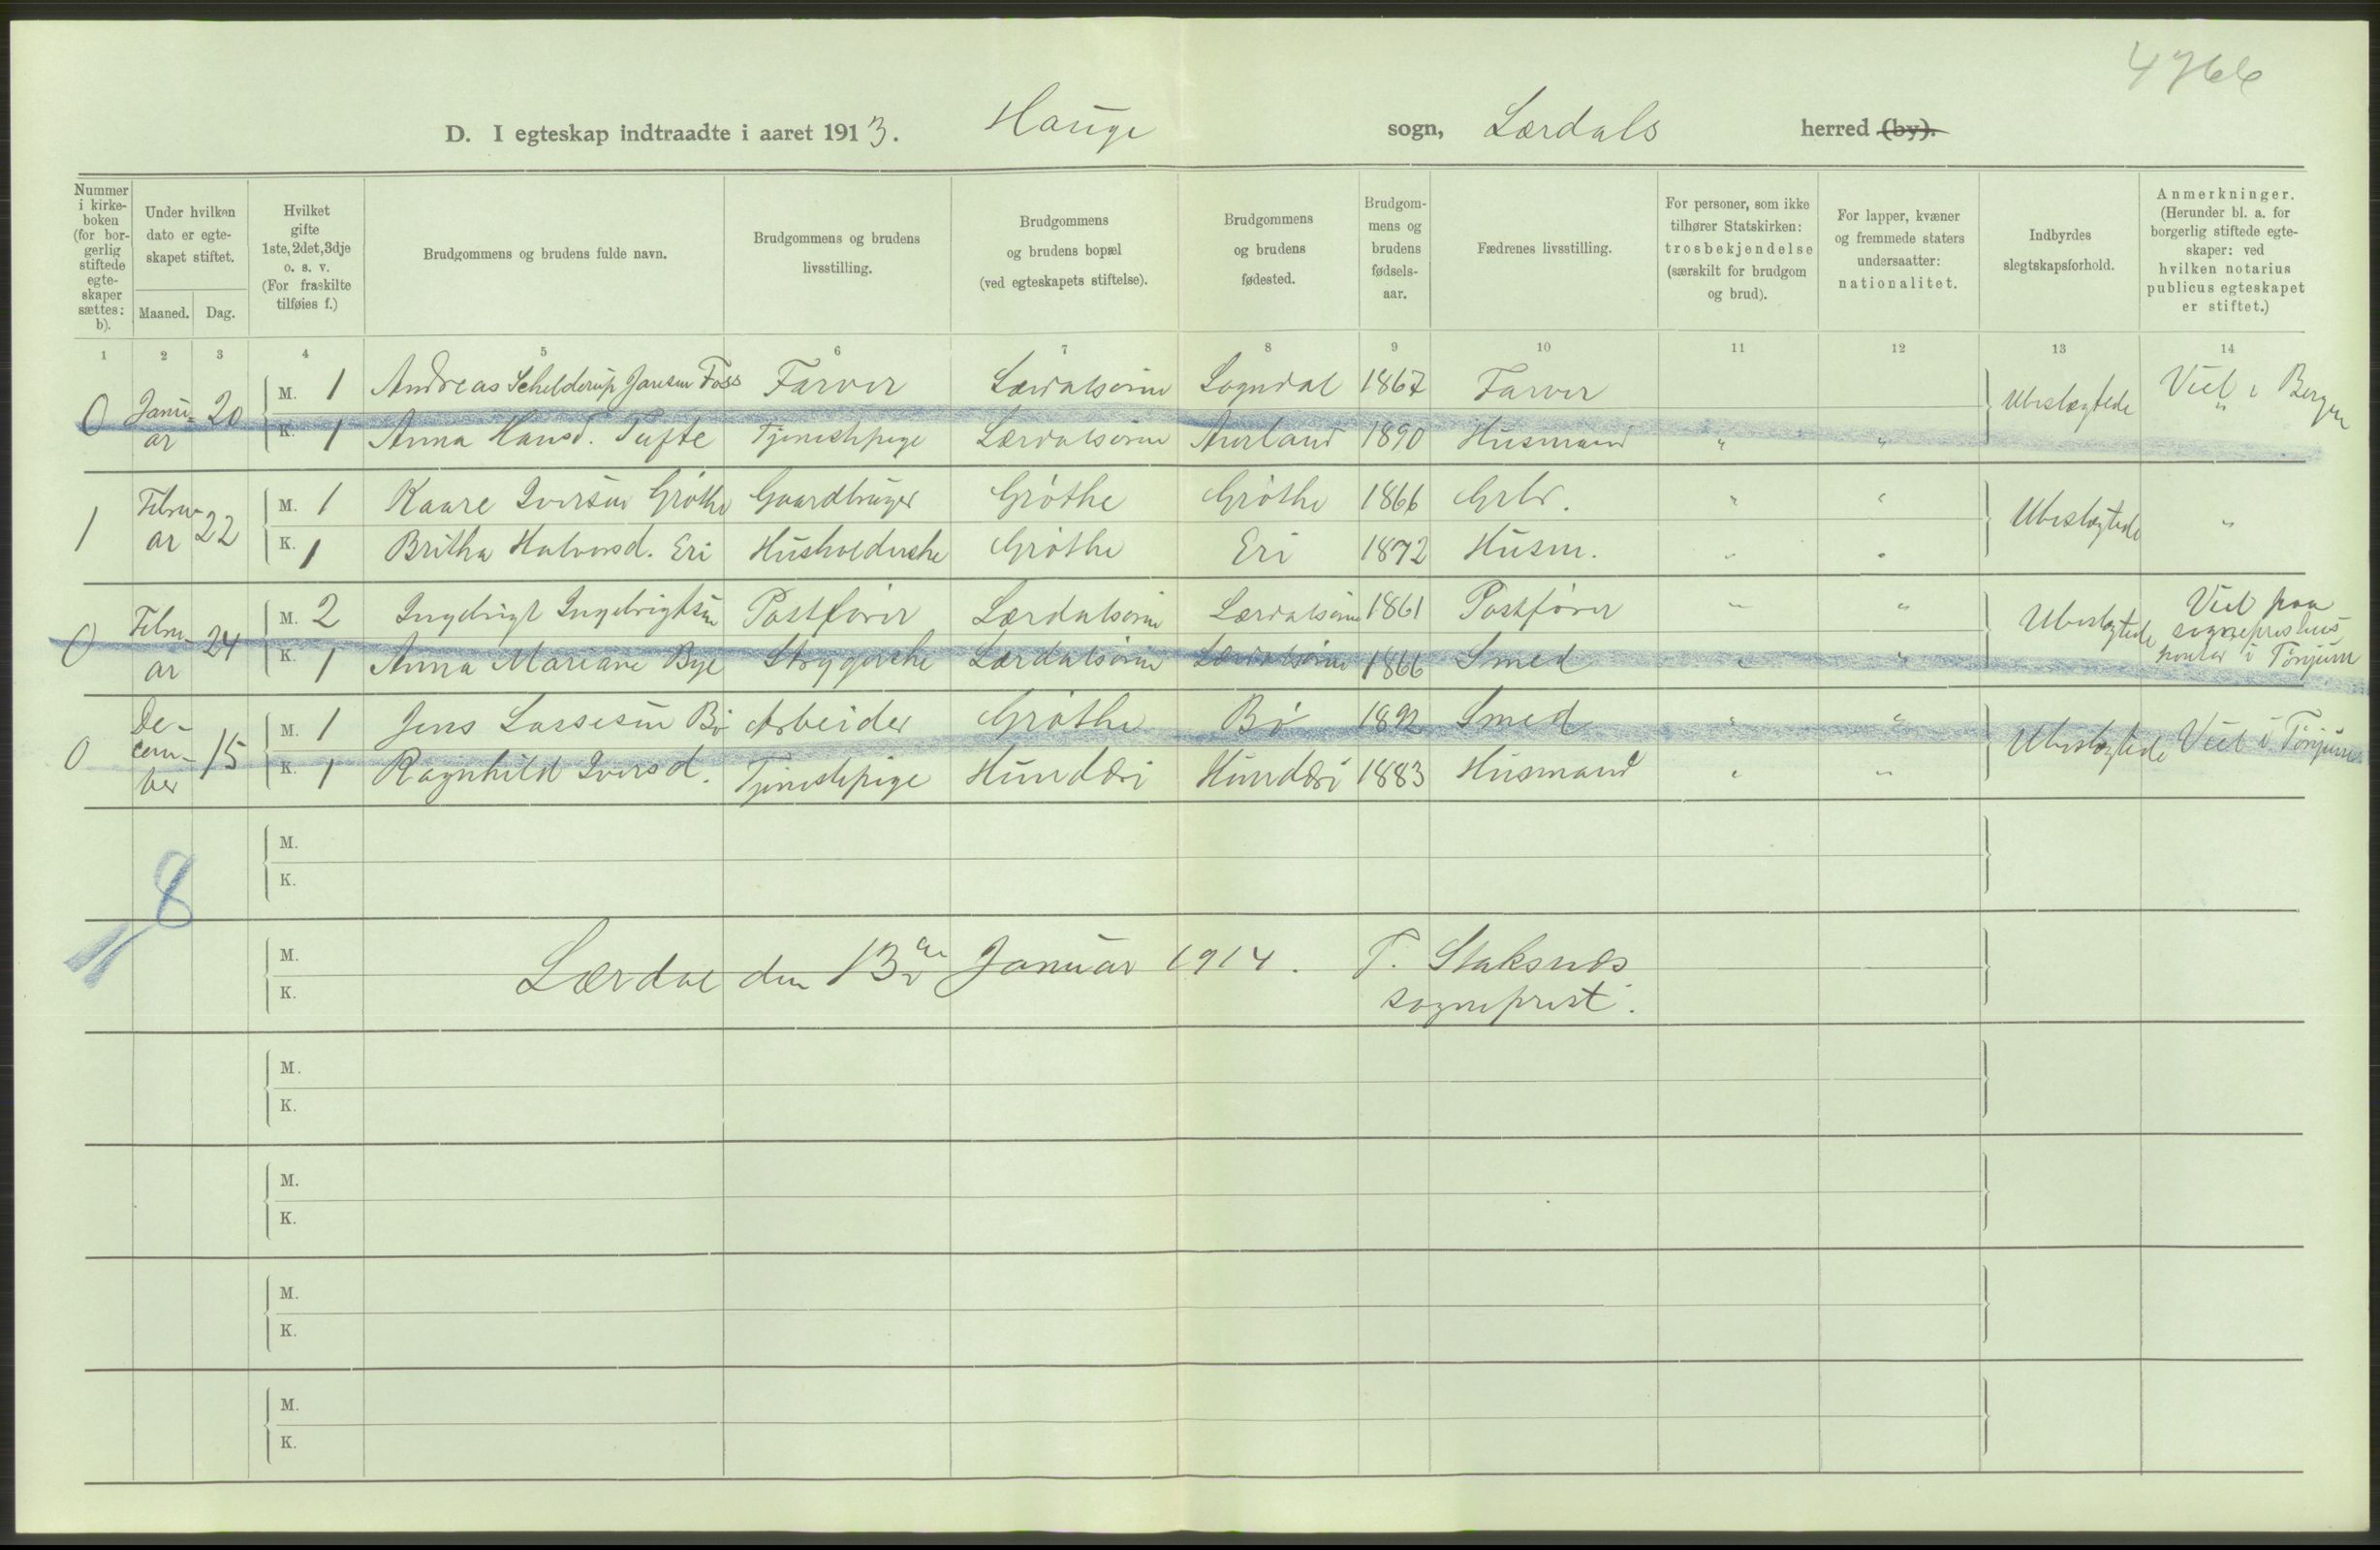 4766
D. I egteskap indtraadte i aaret 1913. Hauge sogn, Lærdals herred (by).
Nummer i kirkeboken (for borgerlig stiftede egteskaper sættes: b).
Under hvilken dato er egteskapet stiftet.
Maaned. Dag.
Hvilket gifte 1ste, 2det, 3dje o. s. v. (For fraskilte tilføies f.)
Brudgommens og brudens fulde navn.
Brudgommens og brudens livsstilling.
Brudgommens og brudens bopæl (ved egteskapets stiftelse).
Brudgommens og brudens fødested.
Brudgommens og brudens fødselsaar.
Fædrenes livsstilling.
For personer, som ikke tilhører Statskirken: trosbekjendelse (særskilt for brudgom og brud).
For lapper, kvæner og fremmede staters undersaatter: nationalitet.
Indbyrdes slegtskapsforhold.
Anmerkninger. (Herunder bl. a. for borgerlig stiftede egteskaper: ved hvilken notarius publicus egteskapet er stiftet.)
1 2 3 4 5 6 7 8 9 10 11 12 13 14
0 Januar 20 M. 1 Andreas Schelderup Jansen Foss Farver Lærdalsøren Sogndal 1867 Farver Ubeslægtede Viet i Bergen
K. 1 Anna Hansd. Tufte Tjenestepige Lærdalsøren Aurland 1890 Husmand " " "
1 Februar 22 M. 1 Kaare Iversen Grøthe Gaardbruger Grøthe Grøthe 1866 Grbr. " " Ubeslægtede "
K. 1 Britha Halvorsd. Eri Husholderske Grøthe Eri 1872 Husm. " "
0 Februar 24 M. 2 Ingebrigt Ingebrigtsen Postfører Lærdalsøren Lærdalsøren 1861 Postfører " " Ubeslægtede Viet paa sogneprestens kontor i Tønjum
K. 1 Anna Mariane Bye Strygerske Lærdalsøren Lærdalsøren 1866 Smed " "
0 December 15 M. 1 Jens Lassesen Bø Arbeider Grøthe Bø 1892 Smed " " Ubeslægtede Viet i Tønjum
K. 1 Ragnhild Iversd. Tjenestepige Hunderi Hunderi 1883 Husmand " "
M.
K.
8
M. Lærdal den 13de Januar 1914. T. Staksnæs
K. sogneprest.
M.
K.
M.
K.
M.
K.
M.
K.